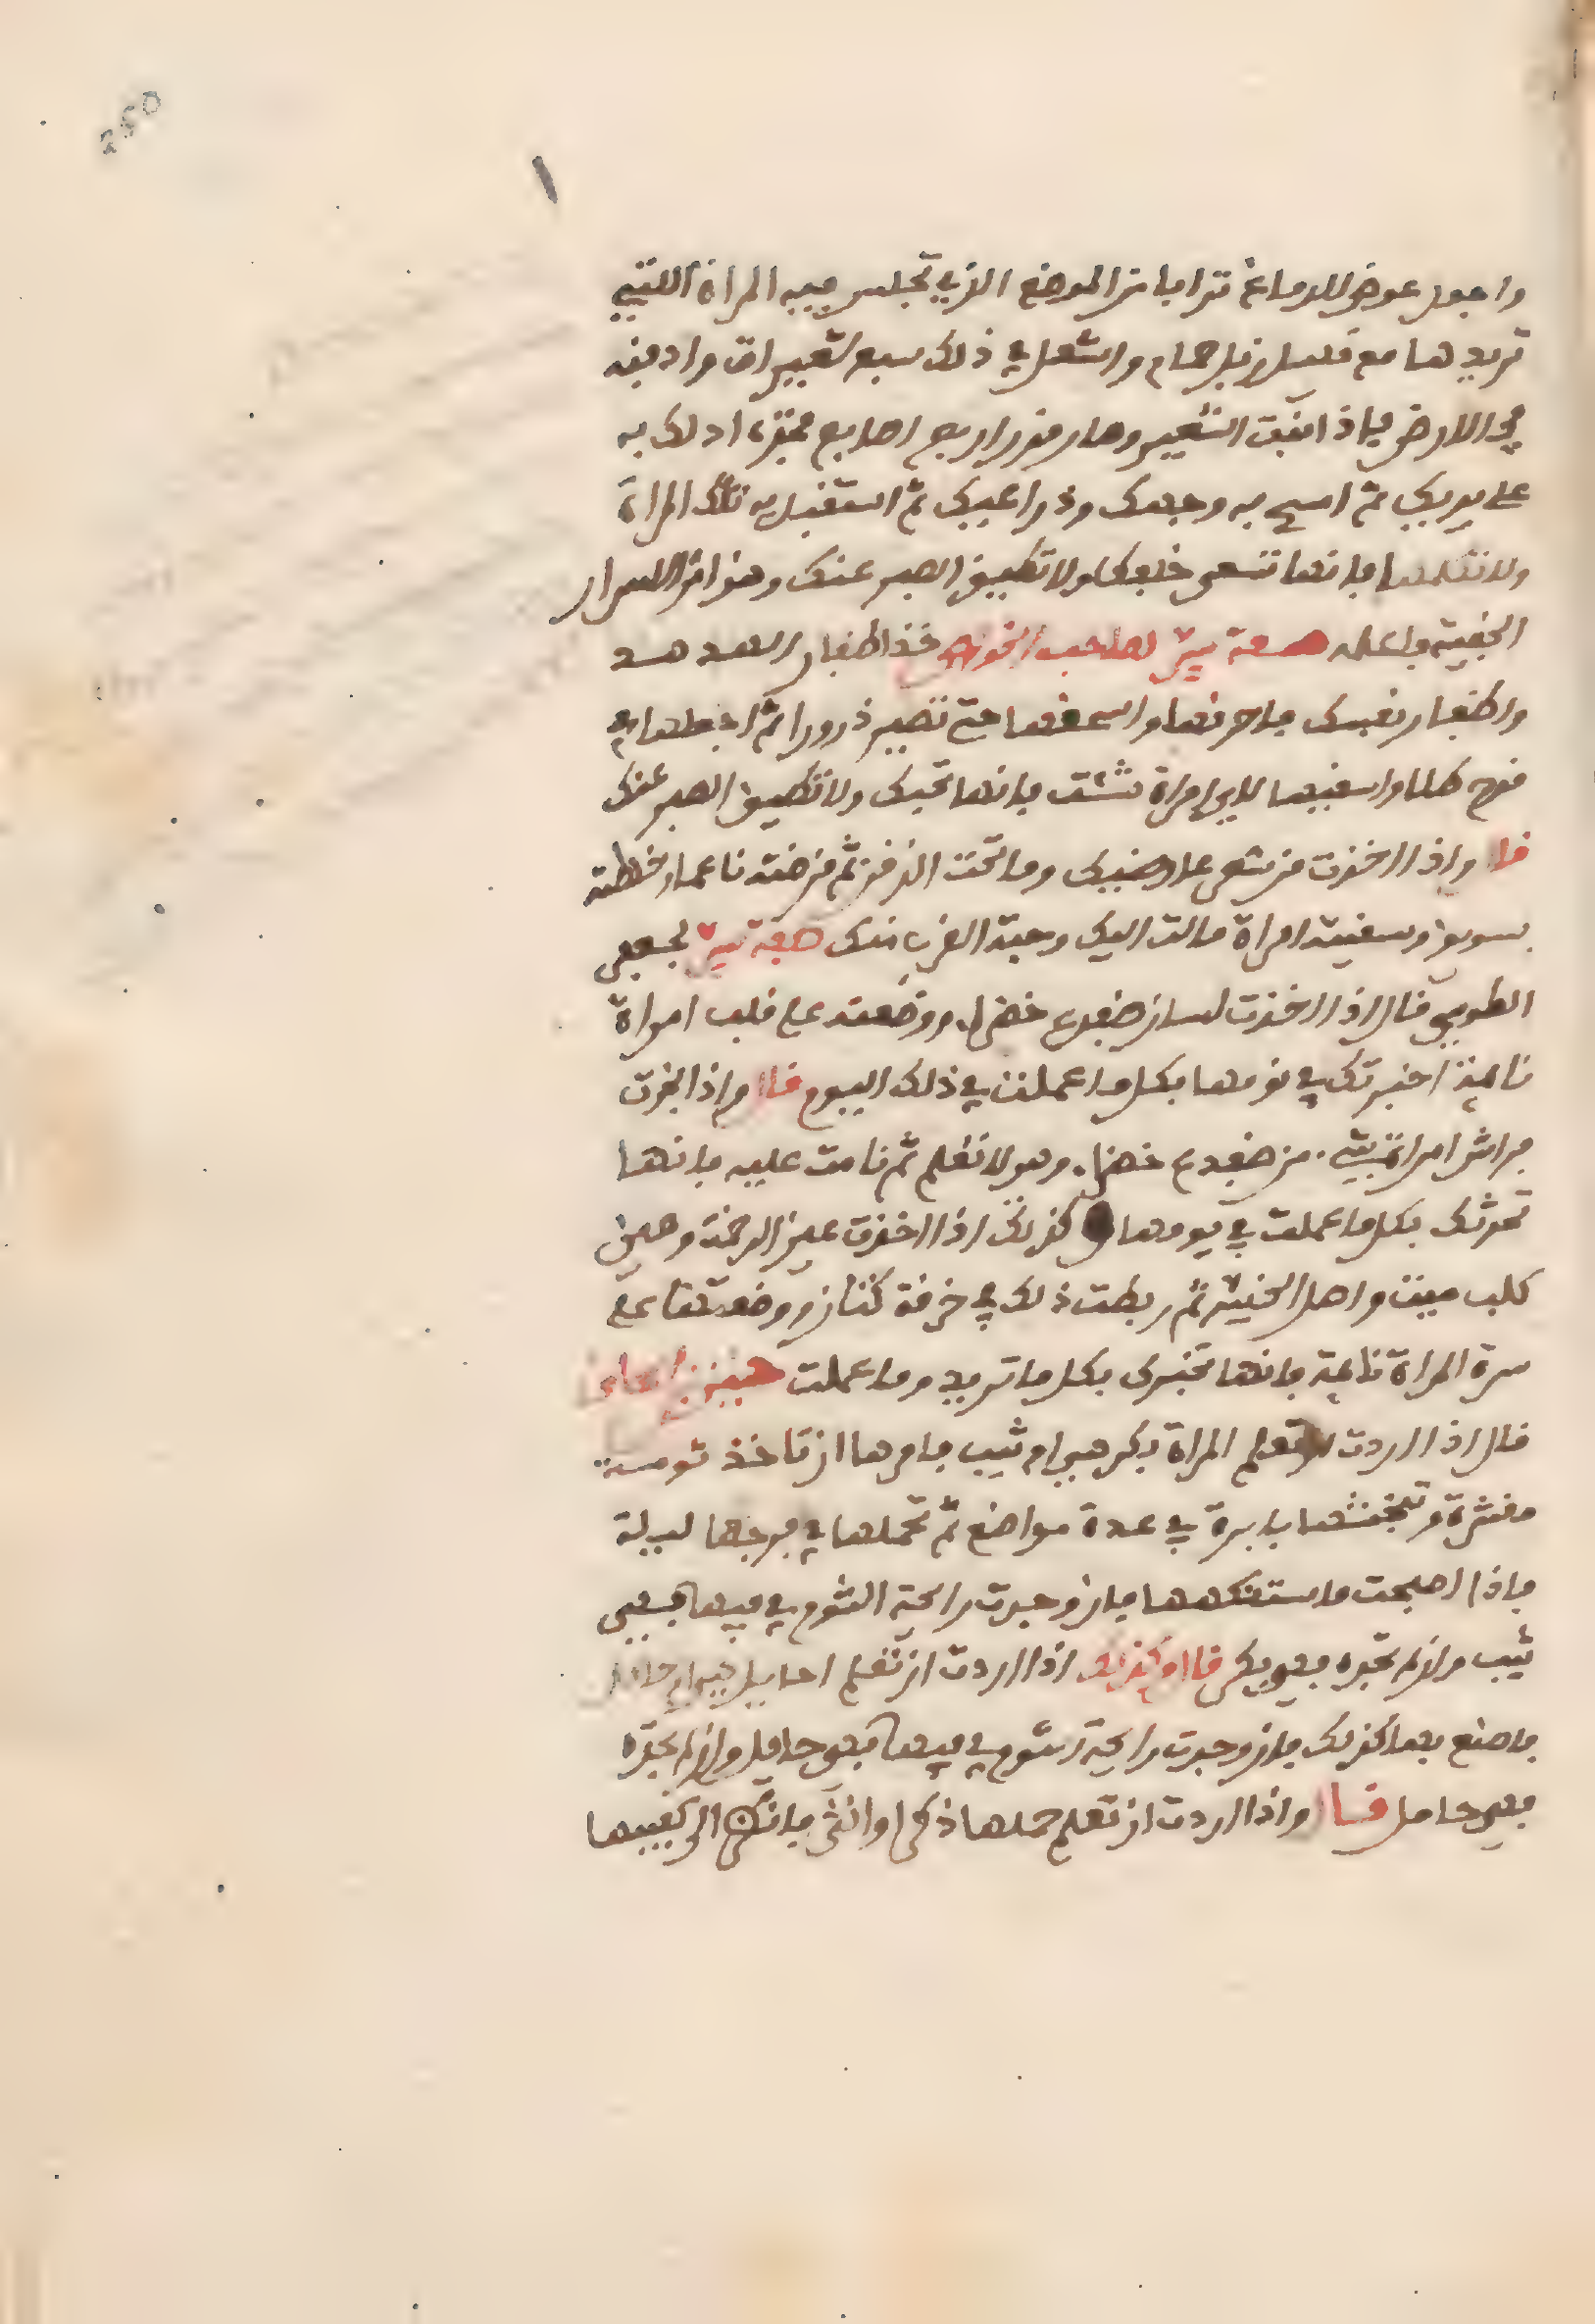 250
واجعل عوض الدماغ ترابا من الموضع الذي تجلس فيه المراة اللتي
تريدها مع قليل زبل حمام واشعل في ذلك سبع شعيرات وادفنه
في الارض فاذا نبت الشعير وصار قدر اربع اصابع فخذه ادلك به
على يديك ثم امسح به وجهك وذراعيك ثم استقبل به تلك المراة
ولا تكلمها فانها تسعى خلفك ولا تطيق الصبر عنك وهذا من الاسرار
الخفية فاعلم صفة سر لصاحب خذ اظفار الهدهد
واظفار نفسك فاحرقها واسحقها حتى تصير ذرورا ثم اجعلها في
قدح طلا واسقيها لاي امراة شئت فانها تحبك ولا تطيق الصبر عنك
قال واذا اخذت من شعر وما تحت الذقن ثم قرضته ناعما وخلطته
بسويق وسقيته امراة مالت اليك وحبة القرب منك صفة سر لجعفر
الطوسي قال اذا اخذت لسان ضفدع خضرا ووضعته على قلب امراة
نائمة اخبرتك في نومها بكل ما عملت في ذلك اليوم قال واذا بخرت
فراش امراة من ضفدع خضرا وهو لا تعلم ثم نامت عليه فانها
تحدثك بكل ما عملت في يومها وكذلك اذا اخذت عين الرخمة وعين
كلب ميت واصل الخس ثم ربطت ذلك في خرقة كتان ووضعتها على
سرة المراة نائمة فانها تخبرك بكل ما تريد وما عملت
قال اذا اردت تعلم المراة بكر هي ام ثيب فامرها ان تاخذ ثومة
مقشرة وتنخشها بابرة في عدة مواضع ثم تحملها في فرجها ليلة
فاذا اصبحت فاستنكهها فان وجدت رايحة الثوم في فيها فهي
ثيب وان لم تجده فهي بكر قال وكذلك اذا اردت ان تعلم احايل هي ام حامل
فاصنع بها كذلك فان وجدت رايحة الثوم في فيها فهي حايل وان لم تجده
فهي حامل قال واذا اردت ان تعلم حملها ذكر او انثى فانظر الى كعبيها